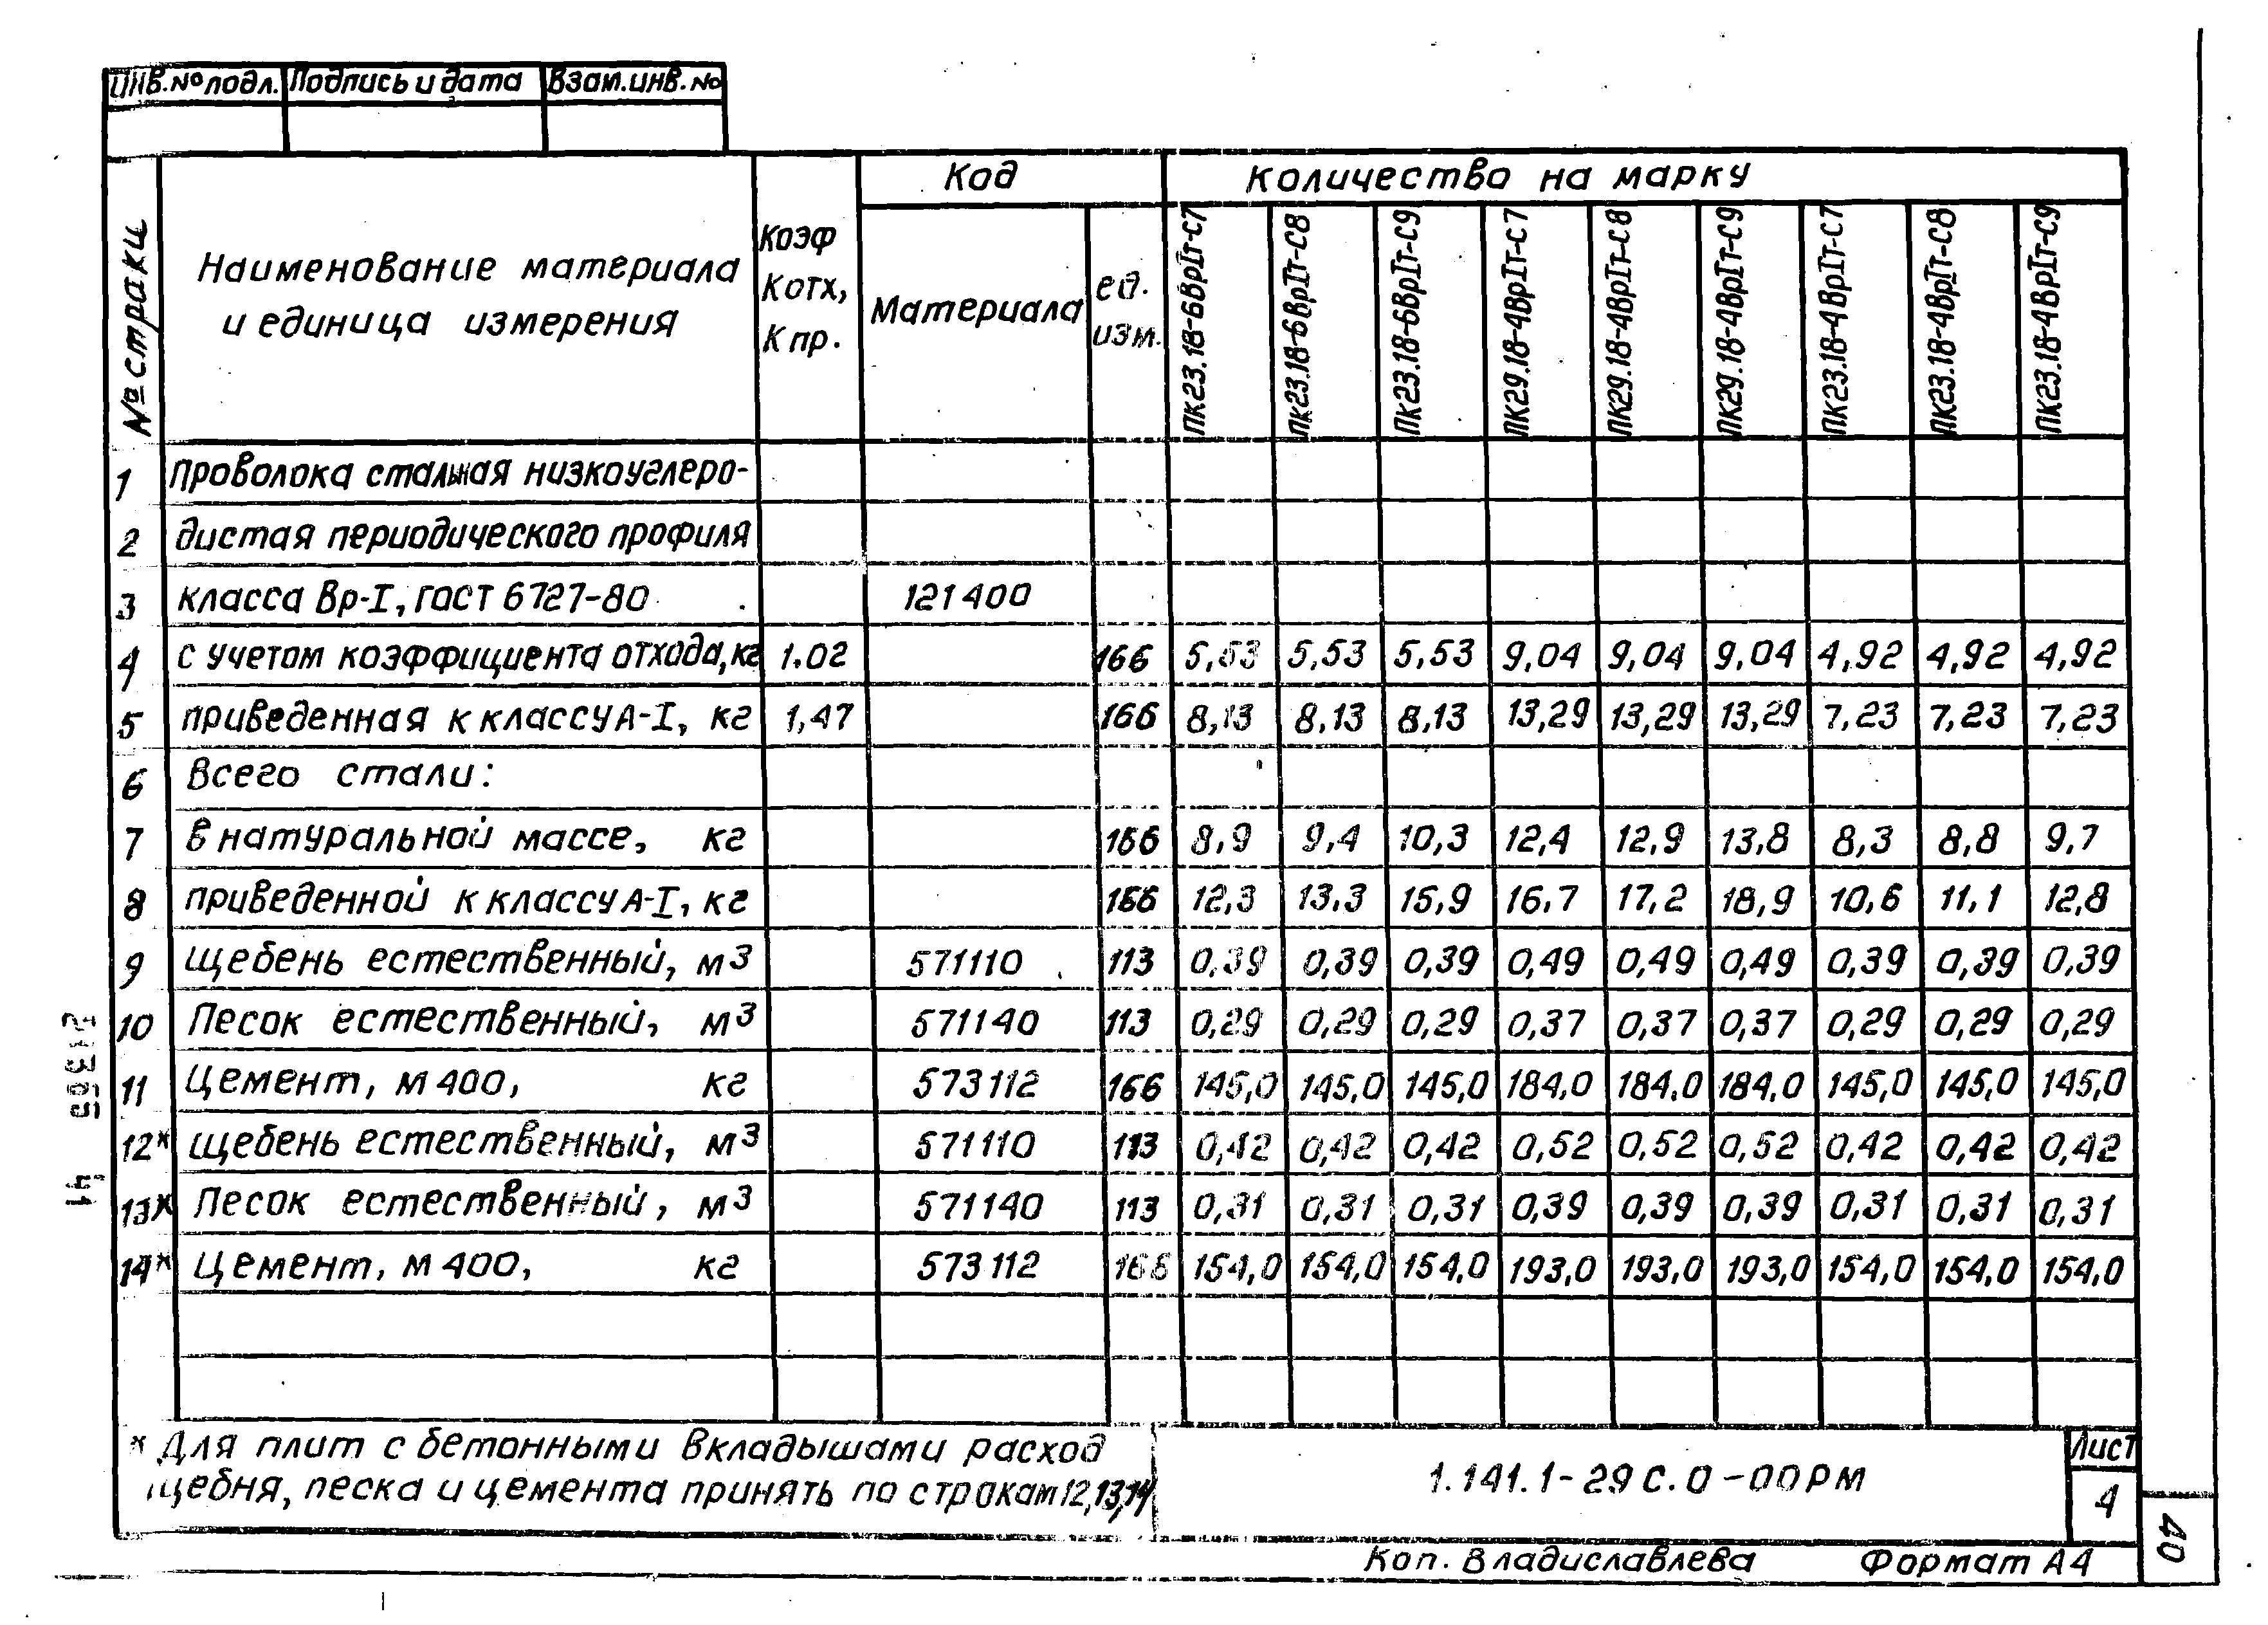 Инв.№ подл. Подпись и дата Взам.инв.№
№ строки Наименование материала и единица измерения Коэф Котх, Кпр. Код Количество на марку
Материала ед. изм. ПК23.18-6ВрIт-С7 ПК23.18-6ВрIт-С8 ПК23.18-6ВрIт-С9 ПК29.18-4ВрIт-С7 ПК29.18-4ВрIт-С8 ПК29.18-4ВрIт-С9 ПК23.18-4ВрIт-С7 ПК23.18-4ВрIт-С8 ПК23.18-4ВрIт-С9
1 Проволока стальная низкоуглеро-
2 дистая периодического профиля
3 класса Вр-I, ГОСТ 6727-80 121400
4 с учетом коэффициента отхода, кг 1.02 166 5,53 5,53 5,53 9,04 9,04 9,04 4,92 4,92 4,92
5 приведенная к классу А-I, кг 1,47 166 8,13 8,13 8,13 13,29 13,29 13,29 7,23 7,23 7,23
6 Всего стали:
7 в натуральной массе, кг 166 8,9 9,4 10,3 12,4 12,9 13,8 8,3 8,8 9,7
8 приведенной к классу А-I, кг 166 12,3 13,3 15,9 16,7 17,2 18,9 10,6 11,1 12,8
9 щебень естественный, м3 571110 113 0,39 0,39 0,39 0,49 0,49 0,49 0,39 0,39 0,39
10 Песок естественный, м3 571140 113 0,29 0,29 0,29 0,37 0,37 0,37 0,29 0,29 0,29
11 Цемент, М 400, кг 573112 166 145,0 145,0 145,0 184,0 184,0 184,0 145,0 145,0 145,0
12* щебень естественный, м3 571110 113 0,42 0,42 0,42 0,52 0,52 0,52 0,42 0,42 0,42
13* Песок естественный, м3 571140 113 0,31 0,31 0,31 0,39 0,39 0,39 0,31 0,31 0,31
14* Цемент, М 400, кг 573112 166 154,0 154,0 154,0 193,0 193,0 193,0 154,0 154,0 154,0
* Для плит с бетонными вкладышами расход
щебня, песка и цемента принять по строкам 12,13,14
1.141.1-29с.0-00РМ
Лист
4
Коп. Владиславлева Формат А4
40
41